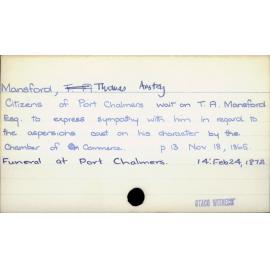 Mansford, T. F. Thomas Anstey
Citizens of Port Chalmers wait on T. A. Mansford
Esq. to express sympathy with him in regard to
the aspersions cast on his character by the
Chamber of Commerce. p 13 Nov 18, 1865.
Funeral at Port Chalmers. 14: Feb 24, 1872
OTAGO WITNESS